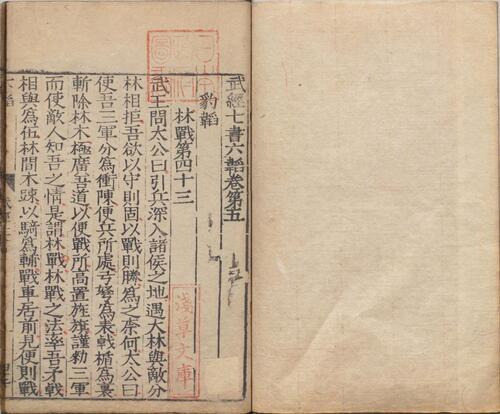 武經七書六韜卷第五
豹韜
林戰第四十三
武王問太公曰引兵深入諸侯之地遇大林與敵分
林相拒吾欲以守則固以戰則勝為之柰何太公曰
使吾三軍分為衝陳便兵所處弓弩為表戟楯為裏
斬除林木極廣吾道以便戰所高置旌旗謹勑三軍
而使敵人知吾之情是謂林戰林戰之法率吾矛戟
相與為伍林間木踈以騎為輔戰車居前見便則戰
淺草文庫